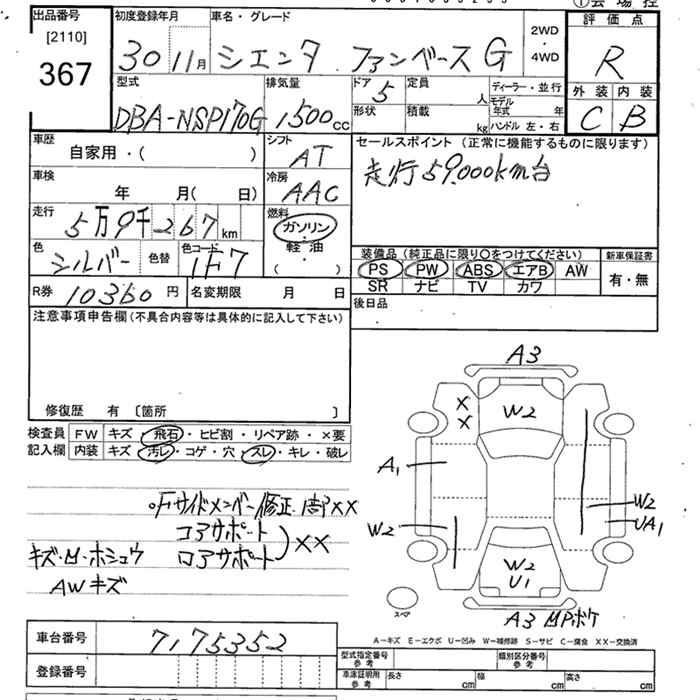 出品番号
[2110]
367
初度登録年月
30 11月
車名・グレード
シエンタ ファンベースG
2WD
・
4WD
評価点
R
外装 内装
C B
型式
DBA-NSP170G
排気量
1500cc
ドア
5
形状
定員
人
積載
kg
ディーラー・並行
モデル
年式 年
ハンドル 左・右
車歴
自家用・( )
シフト
AT
セールスポイント (正常に機能するものに限ります)
走行59,000km台
車検
年 月( 日)
冷房
AAC
走行
5万9千267km
燃料
ガソリン・
軽油・
( )
色
シルバー
色替
色コード
1F7
装備品 (純正品に限り○をつけてください)
PS PW ABS エアB AW
SR ナビ TV カワ
新車保証書
有・無
R券 10360円
名変期限 月 日
後日品
注意事項申告欄(不具合内容等は具体的に記入して下さい)
修復歴 有 〔箇所 〕
検査員
記入欄
FW キズ・飛石・ヒビ割・リペア跡・×要
内装 キズ・汚レ・コゲ・穴・スレ・キレ・破レ
。Fサイドメンバー修正
××
コアサポート
ロアサポート
××
キズ・凹・ホシュウ
AWキズ
A3
X
X
W2
A1
W2
UA1
W2
W2
U1
スペア
A3 凹Pボケ
A-キズ E-エクボ U-凹み W-補修跡 S-サビ C-腐食 XX-交換済
車台番号
7175352
登録番号
型式指定番号
参考
類別区分番号
参考
車庫証明用
参考
長さ cm
幅 cm
高さ cm